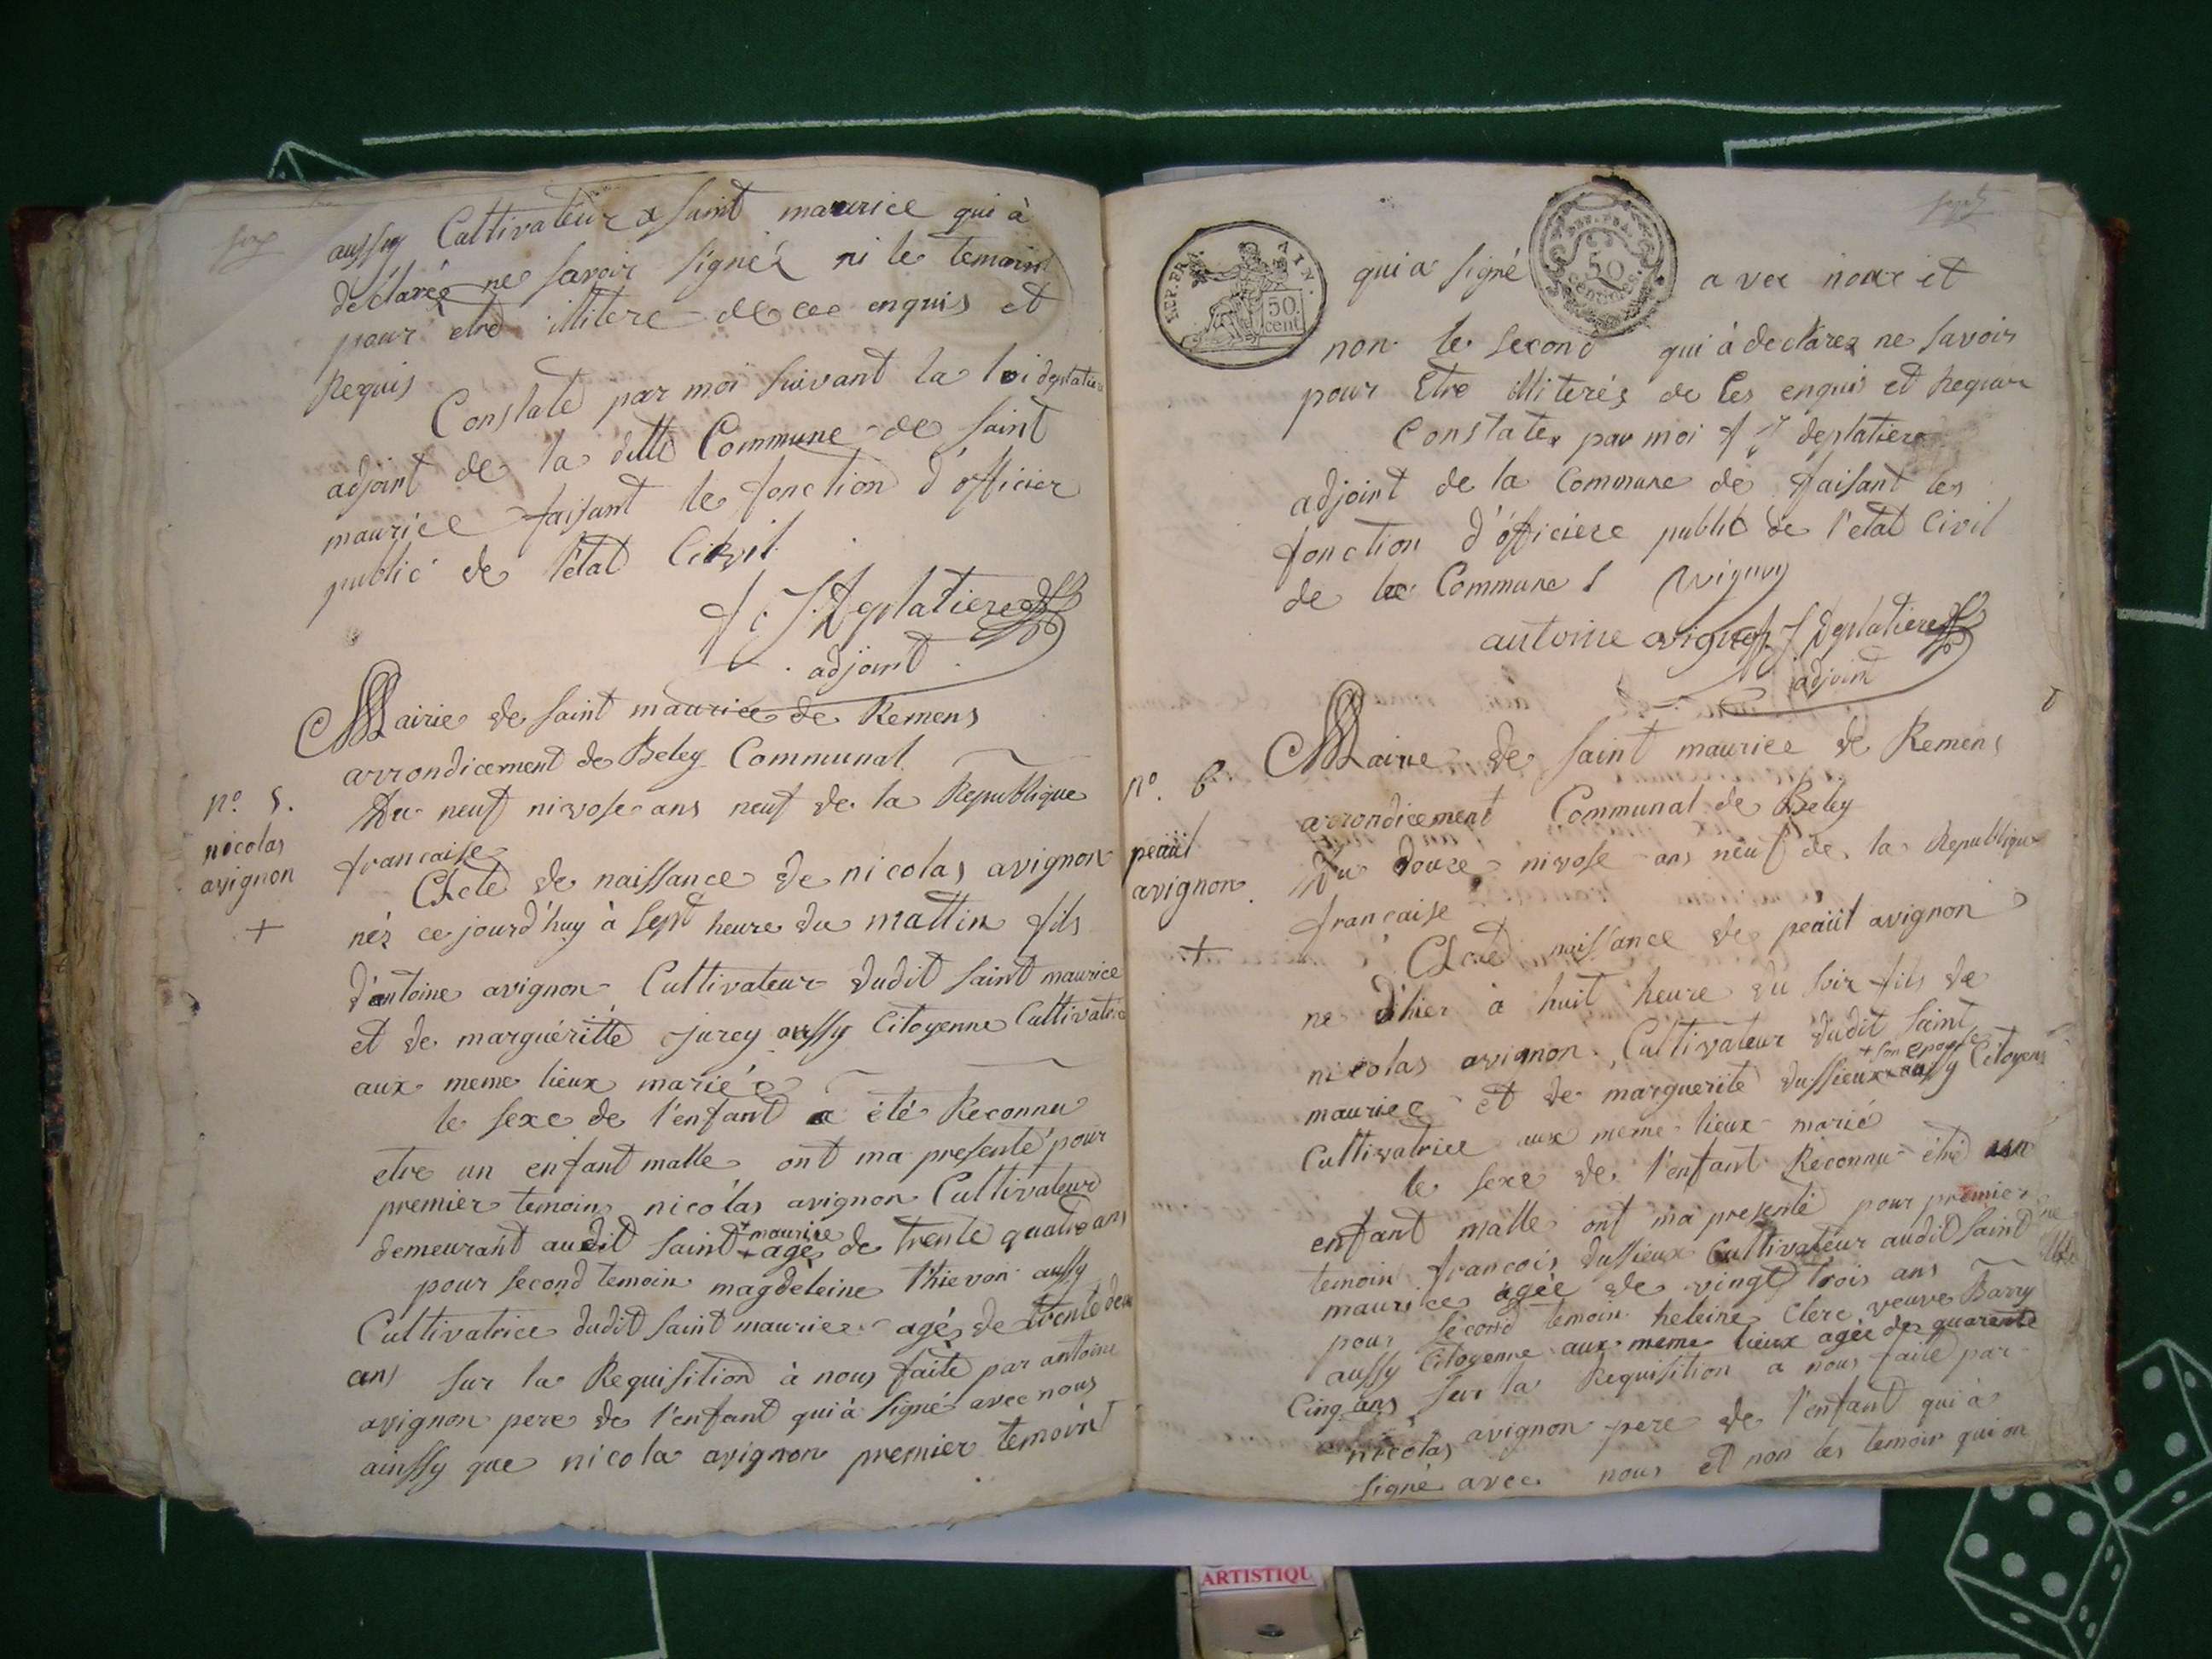 six
aussy Cultivateur a saint maurice qui à
déclarée ne savoir signéz ni le temoint
pour etre illitere de ce enquis et
Requis
Constaté par moi suivant la loi deplatiere
adjoint de la ditte Commune de saint
maurice faisant le fonction d'officier
public de l'état Civil
f. J. Deplatiere
adjoint
Mairie de saint maurice de Remens
arrondicement de Beley Communal
n.o 5.
nicolas
avignon
+
Du neuf nivose ans neuf de la Republique
francaise
Acte de naissance de nicolas avignon
néz ce jourd'huy à sept heure du mattin fils
d'antoine avignon Cultivateur dudit saint maurice
et de marguéritte jurey aussy Citoyenne Cultivatrice
aux meme lieux mariée
le sexe de l'enfant a été Reconnu
etre un enfant malle ont ma presenté pour
premier temoin nicolas avignon Cultivateur
demeurant audit saint + maurice + agé de trente quatre ans
pour second temoin magdeleine Thievon aussy
Cultivatrice dudit saint maurice agé de trente deux
ans sur la Requisition à nous faite par antoine
avignon pere de l'enfant qui à signé avec nous
ainssy que nicola avignon premier temoint
sept
IMP. FRA.
50 cent
50 centimes
qui a signé avec nour et
non le second qui à declarez ne savoir
pour Etre illiteréz de Ces enquis et Requir
Constater par moi f J deplatiere
adjoint de la Commune de faisant les
fonction d'officiere public de l'etat Civil
de la Commune avignon
antoine avignon f J Deplatiere
adjoint
Mairie de saint maurice de Remens
n.o 6.
peaül
avignon
+
arrondicement Communal de Beley
Du Douze nivose ans neuf de la Republique
francaise
Acte naissance de peaül avignon
ne d'hier à huit heure du soir fils de
nicolas avignon Cultivateur dudit saint
maurice et de marguerite dussieux + son epouse aussy Citoyens
Cultivatrice aux meme lieux marié
le sexe de l'enfant Reconnu etre un
enfant malle ont ma presenté pour premier
temoin francois dussieux Cultivateur audit saint
maurice agée de vingt trois ans
pour second temoin heleine Clerc veuve Barry
aussy Citoyenne aux meme lieux agée de quarente
Cinq ans sur la Requisition a nous faite par
nicolas avignon pere de l'enfant qui à
signe avec nous et non les temoin qui on
ARTISTIQU